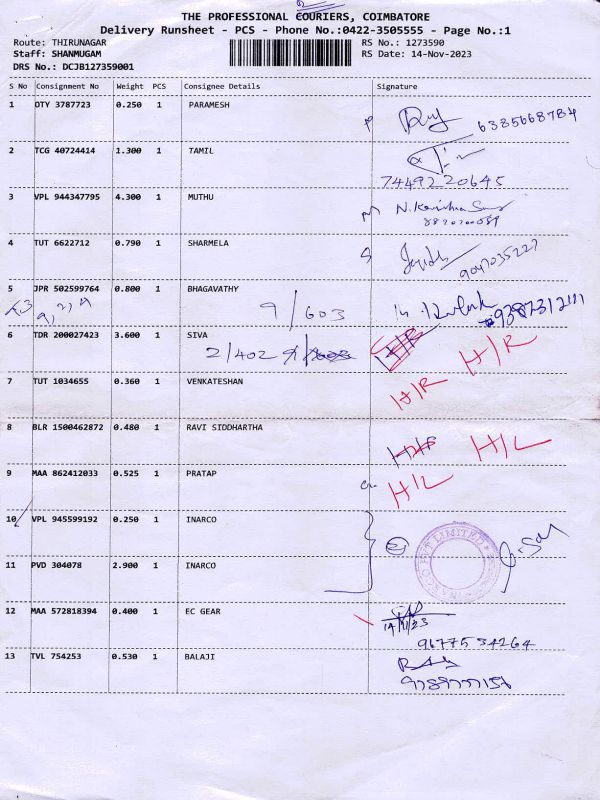 THE PROFESSIONAL COURIERS, COIMBATORE
Delivery Runsheet - PCS - Phone No.:0422-3505555 - Page No.:1
Route: THIRUNAGAR RS No.: 1273590
Staff: SHANMUGAM RS Date: 14-Nov-2023
DRS No.: DCJB127359001
S No Consignment No Weight PCS Consignee Details Signature
1 OTY 3787723 0.250 1 PARAMESH
6385668784
2 TCG 40724414 1.300 1 TAMIL
7449220645
3 VPL 944347795 4.300 1 MUTHU
4 TUT 6622712 0.790 1 SHARMELA
9047035227
5 JPR 502599764 0.800 1 BHAGAVATHY
9/603
6 TDR 200027423 3.600 1 SIVA
2/402
H/R
7 TUT 1034655 0.360 1 VENKATESHAN
H/R
8 BLR 1500462872 0.480 1 RAVI SIDDHARTHA
H/L
9 MAA 862412033 0.525 1 PRATAP
H/L
10 VPL 945599192 0.250 1 INARCO
11 PVD 304078 2.900 1 INARCO
12 MAA 572818394 0.400 1 EC GEAR
14/11/23
9677534264
13 TVL 754253 0.530 1 BALAJI